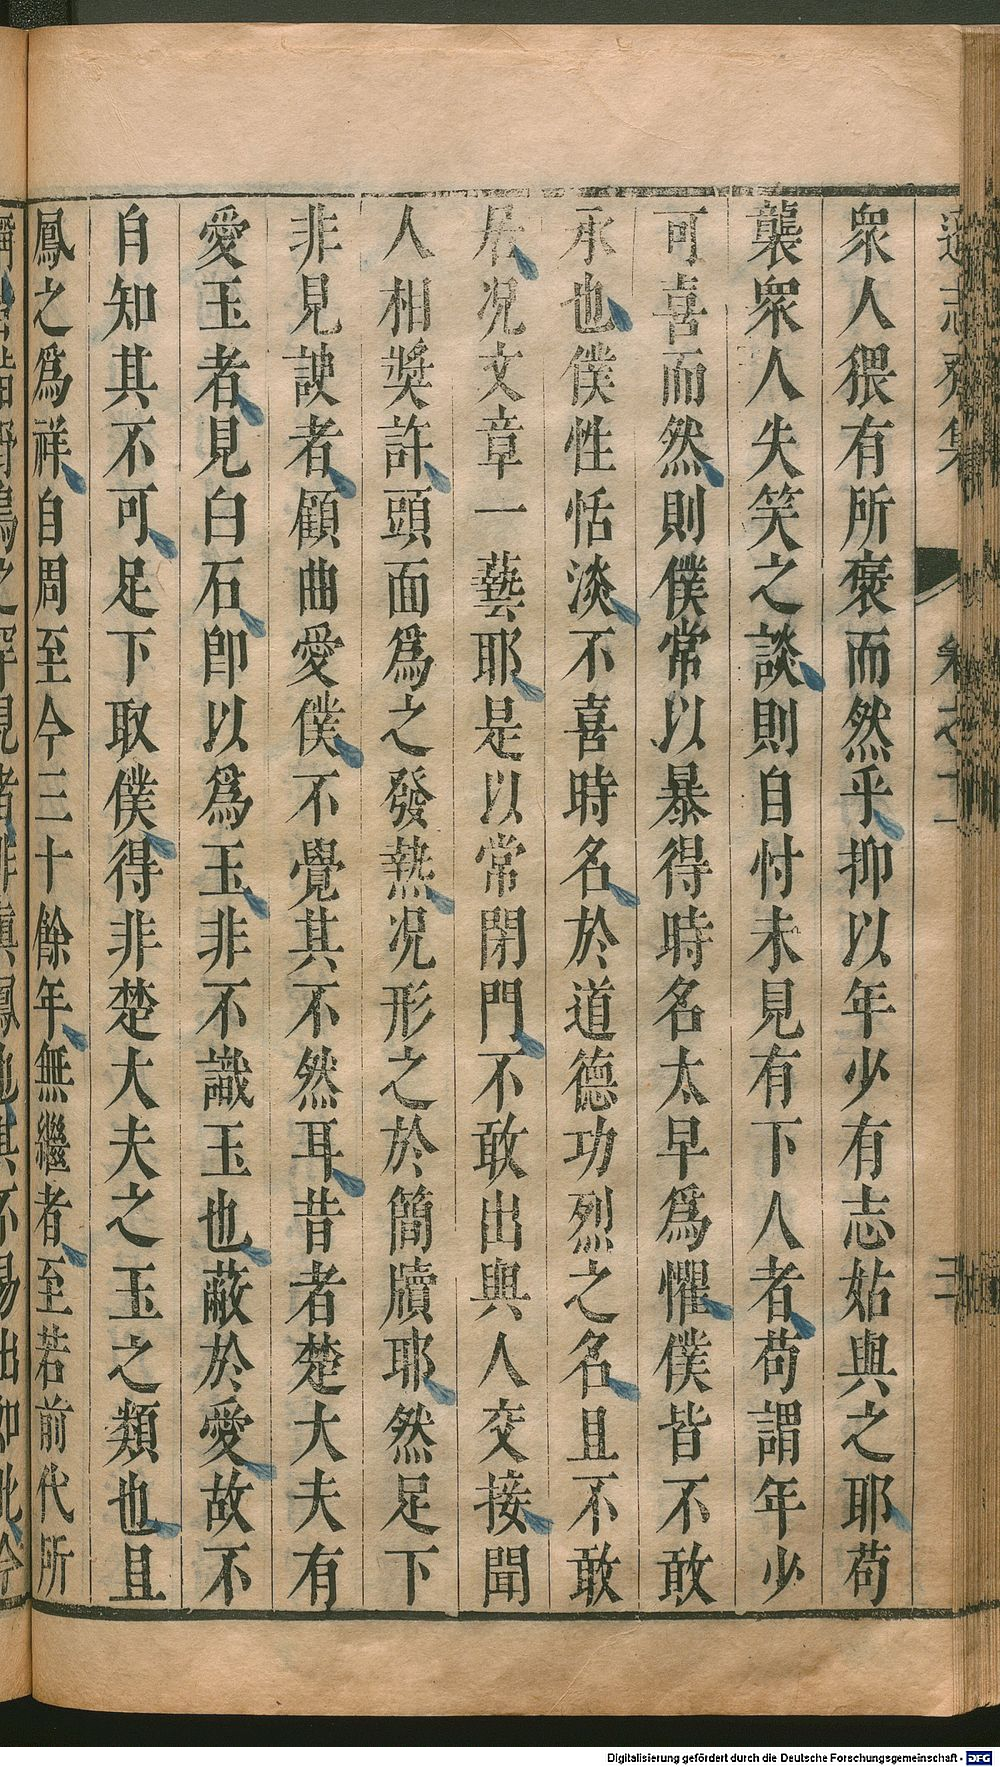 衆人猥有所褒而然乎抑以年少有志姑與之耶苟
襲衆人失笑之談則自忖未見有下人者苟謂年少
可喜而然則僕常以暴得時名太早爲懼僕皆不敢
承也僕性恬淡不喜時名於道德功烈之名且不敢
居况文章一藝耶是以常閉門不敢出與人交接聞
人相奬許頭面爲之發熱况形之於簡牘耶然足下
非見諛者顧曲愛僕不覺其不然耳昔者楚大夫有
愛玉者見白石卽以爲玉非不識玉也蔽於愛故不
自知其不可足下取僕得非楚大夫之玉之類也且
鳳之爲祥自周至今三十餘年無繼者至若前代所
Digitalisierung gefördert durch die Deutsche Forschungsgemeinschaft - DFG